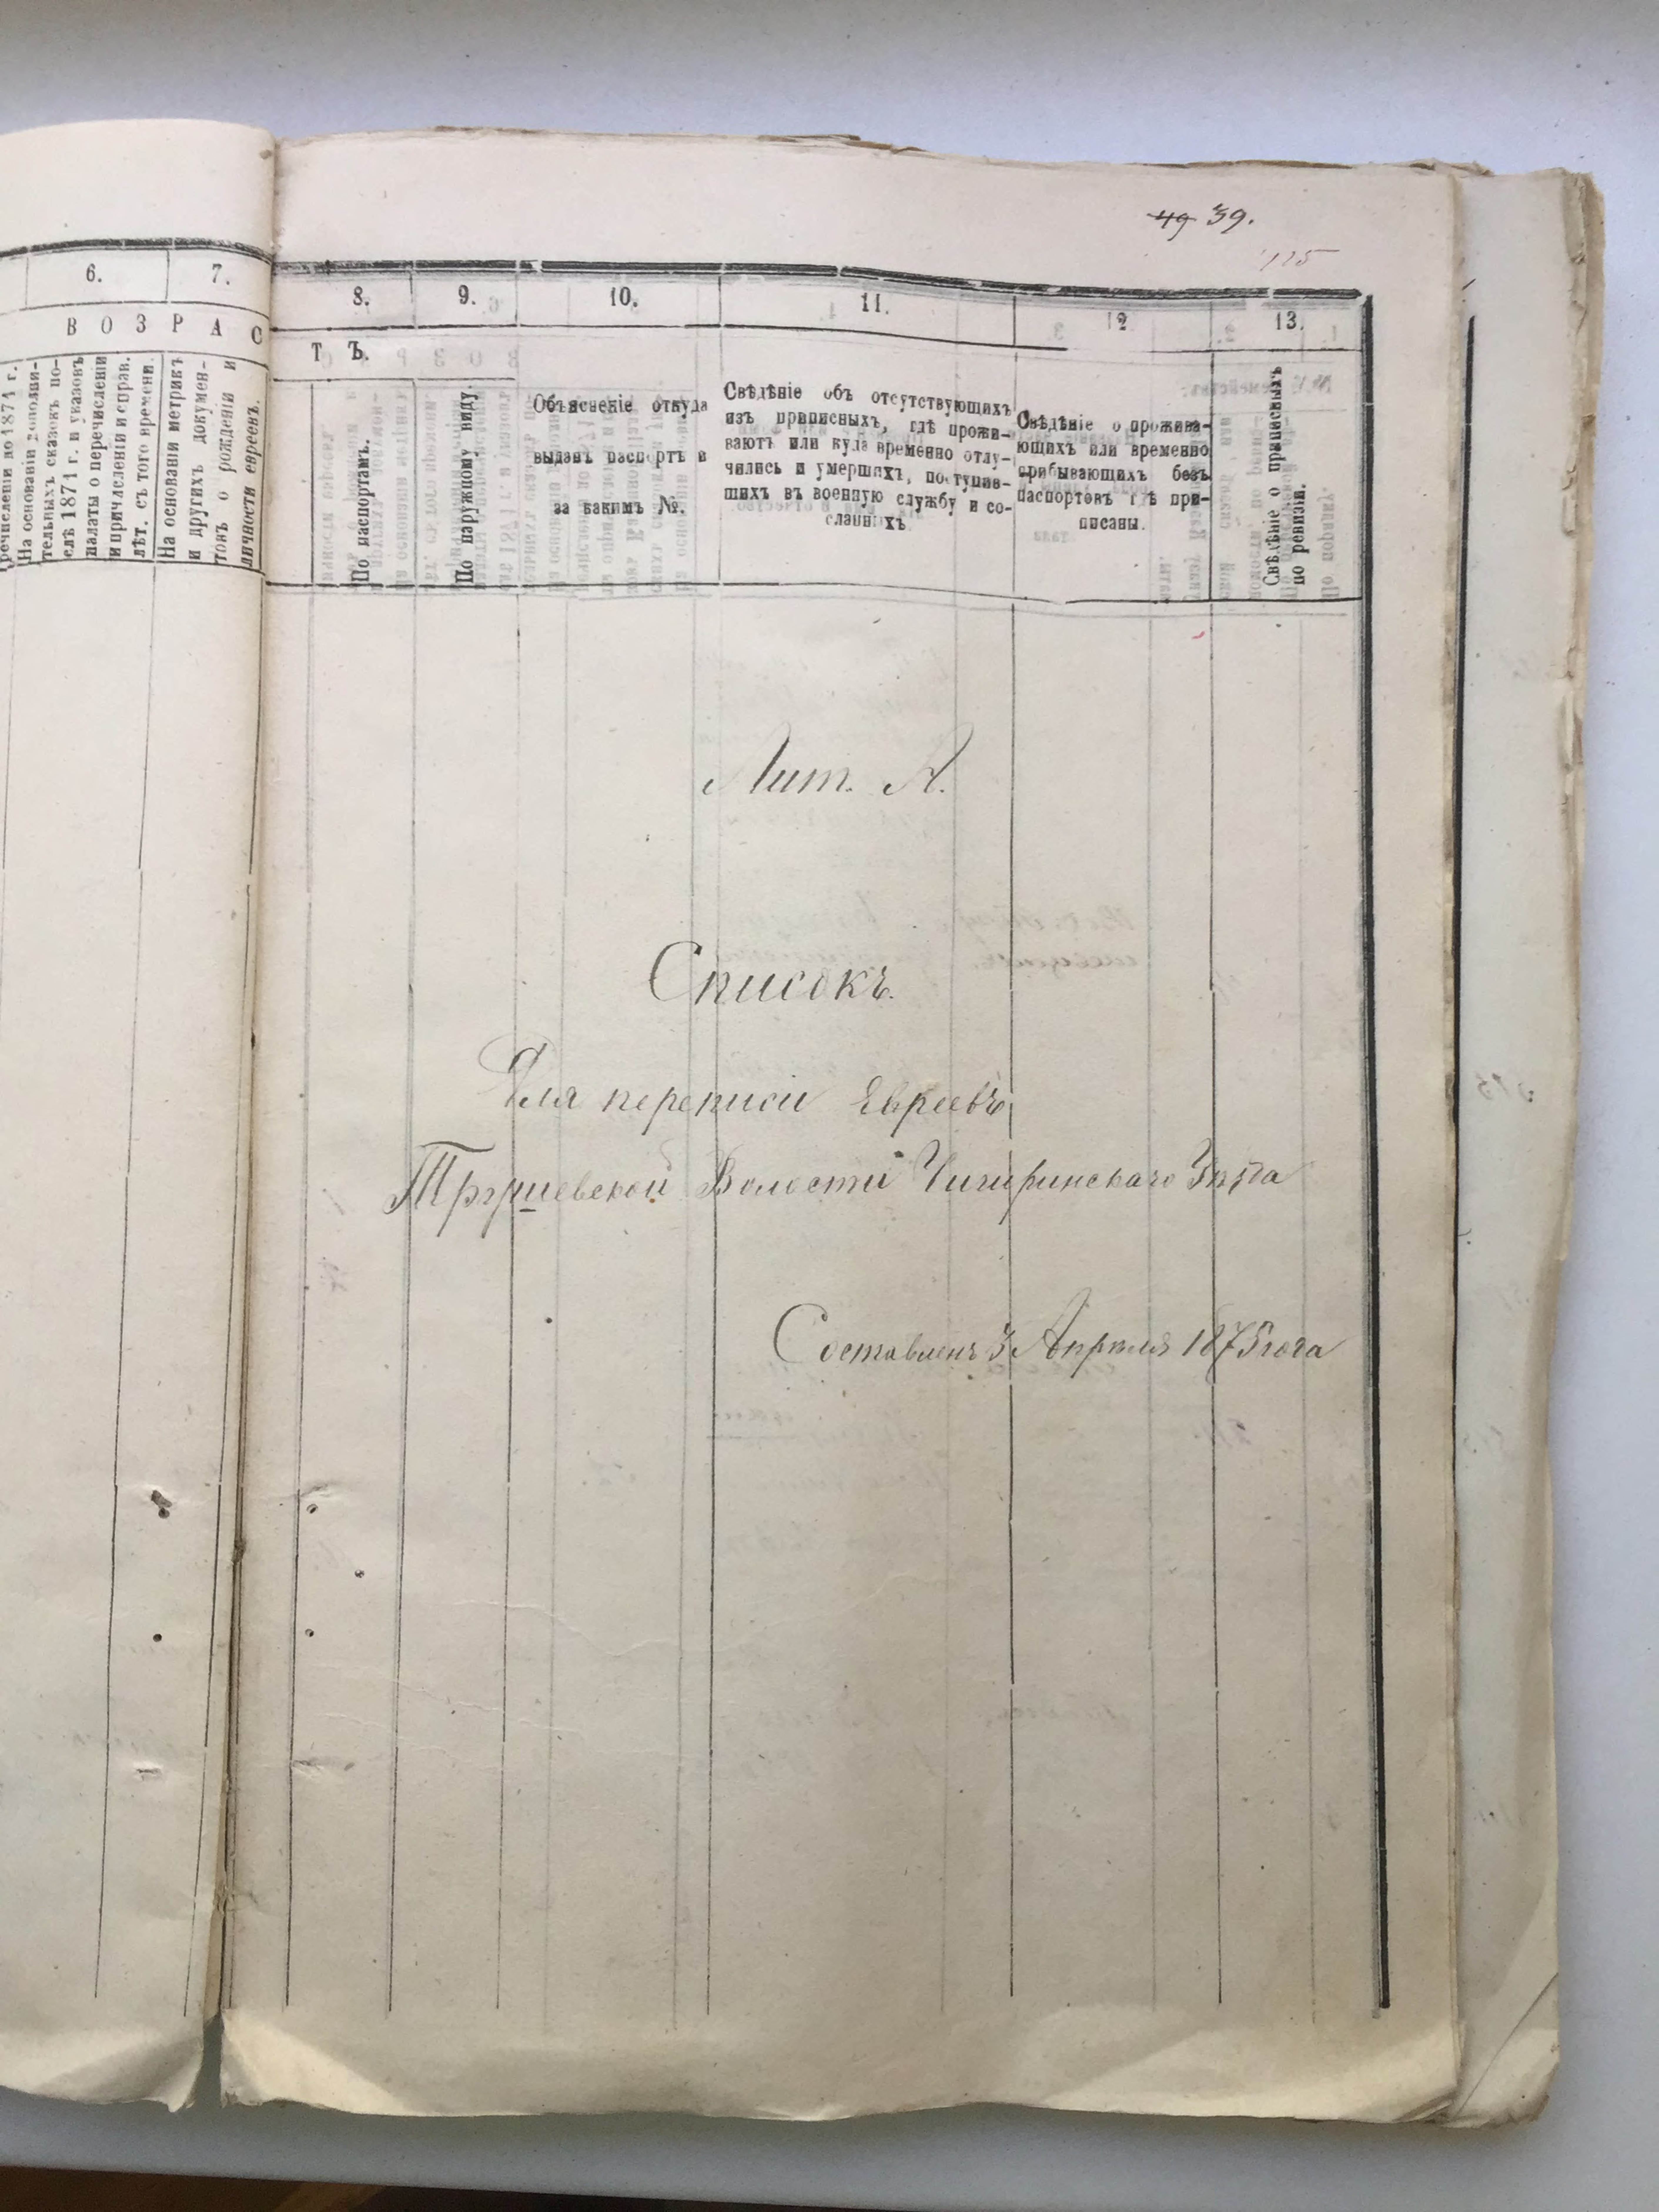 49 39.
115
6.
7.
В О З Р А С
речисленіи до 1871 г.
На основаніи дополни-
тельныхъ сказокъ по-
слѣ 1871 г. и указовъ
палаты о перечисленіи
и причисленіи и справ.
лѣт. съ того времени.
На основаніи метрикъ
и другихъ докумен-
товъ о рожденіи и
личности евреевъ.
8.
9.
10.
11.
12
13.
Т Ъ.
По паспортамъ.
По наружному виду.
Объясненіе откуда
выданъ паспортъ и
за какимъ №.
Свѣдѣніе объ отсутствующихъ
изъ приписныхъ, гдѣ прожи-
ваютъ или куда временно отлу-
чились и умершихъ, поступив-
шихъ въ военную службу и со-
сланныхъ.
Свѣдѣніе о прожива-
ющихъ или временно
прибывающихъ безъ
паспортовъ гдѣ при-
писаны.
Свѣдѣніе о приписныхъ
по ревизіи.
Лит. А.
Списокъ.
Для переписи Евреевъ
Волости Чигиринскаго Уѣзда
Составленъ 3 Апрѣля 1875 года